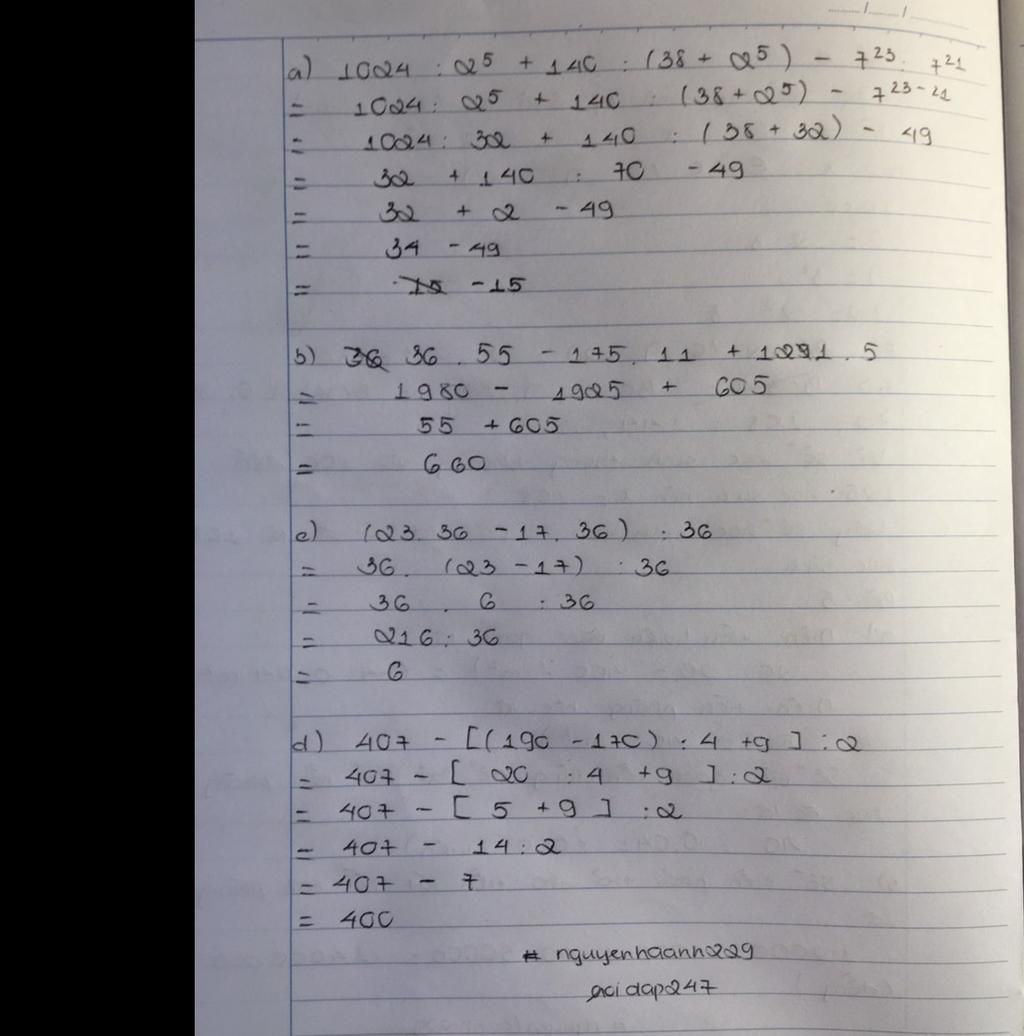 a) 1024 : 2⁵ + 140 : (38 + 2⁵) - 7²³ : 7²¹
= 1024 : 2⁵ + 140 : (38 + 2⁵) - 7²³⁻²¹
= 1024 : 32 + 140 : (38 + 32) - 49
= 32 + 140 : 70 - 49
= 32 + 2 - 49
= 34 - 49
= -15
b) 36 . 55 - 175 . 11 + 121 . 5
= 1980 - 1925 + 605
= 55 + 605
= 660
c) (23 . 36 - 17 . 36) : 36
= 36 . (23 - 17) : 36
= 36 . 6 : 36
= 216 : 36
= 6
d) 407 - [(190 - 170) : 4 + 9] : 2
= 407 - [20 : 4 + 9] : 2
= 407 - [5 + 9] : 2
= 407 - 14 : 2
= 407 - 7
= 400
# nguyenhaanh229
hoidap247